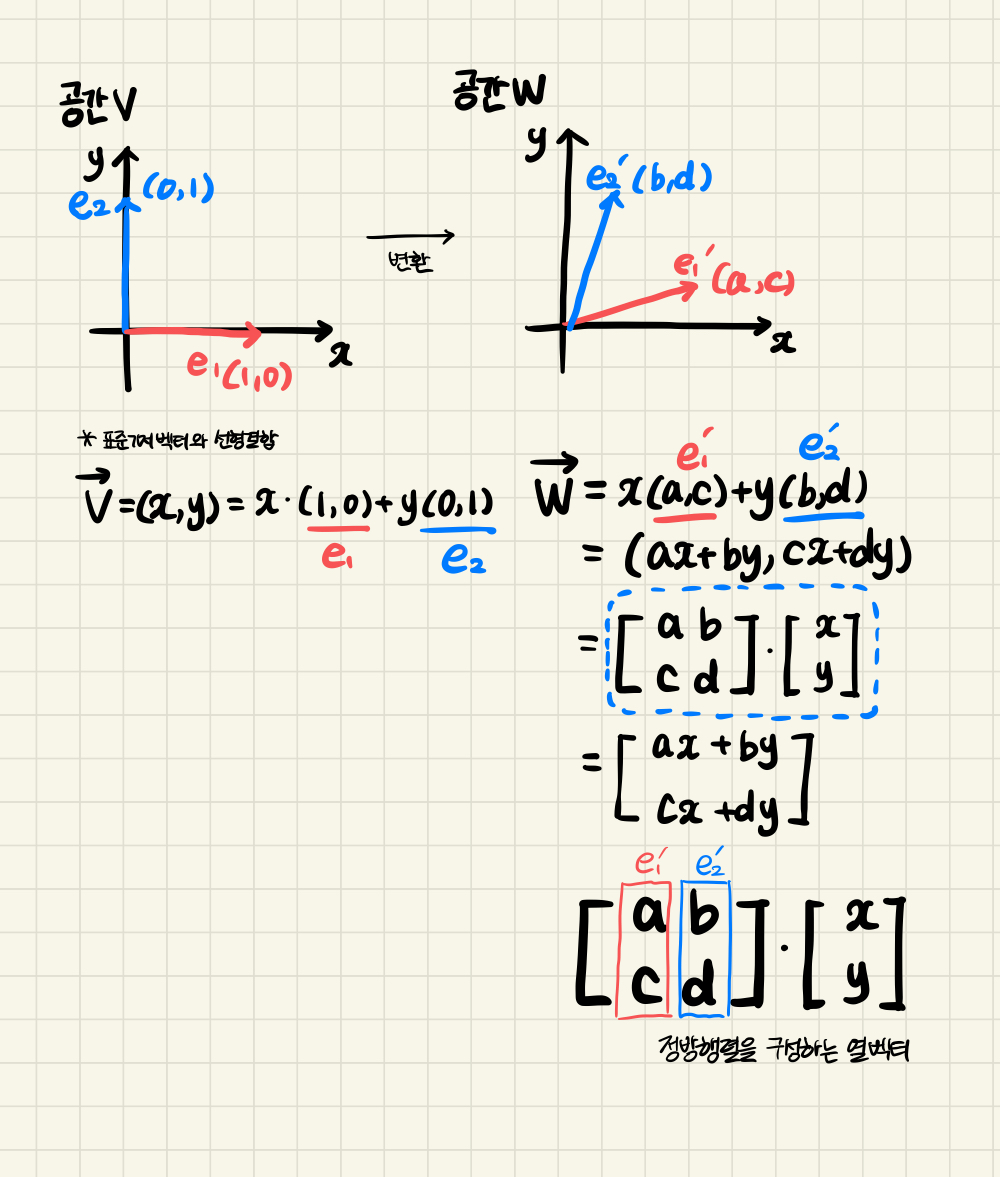 공간 V
y
e₂ (0,1)
e₁(1,0)
x
변환
공간 W
y
e₂′(b,d)
e₁′(a,c)
x
* 표준기저벡터와 선형결합
V⃗ =(x,y) = x·(1,0)+y(0,1)
e₁ e₂
e₁′ e₂′
W⃗ = x(a,c)+y(b,d)
= (ax+by, cx+dy)
= [ a b ] · [ x ]
[ c d ] [ y ]
= [ ax +by ]
[ cx +dy ]
e₁′ e₂′
[ a b ] · [ x ]
[ c d ] [ y ]
정방행렬을 구성하는 열벡터